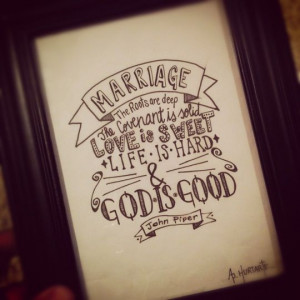 MARRIAGE
The Roots are deep
The Covenant is solid
LOVE is SWEET
LIFE·IS·HARD
&
GOD·IS·GOOD
John Piper